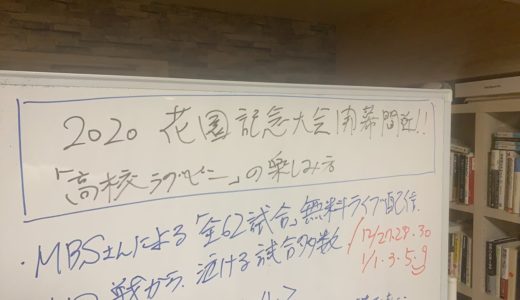 2020 花園記念大会 開幕間近!!
「高校ラグビー」の楽しみ方
・MBSさんによる「全62試合」無料ライブ配信
戦から、泣ける試合多数
12/27.28.30
1/1.3.5.9